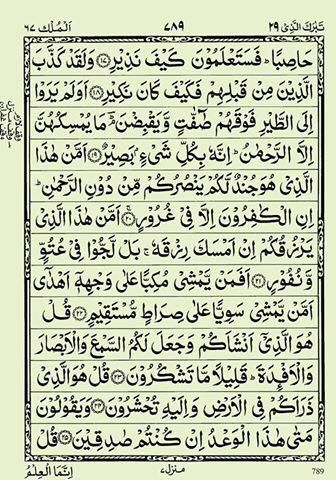 تبٰرك الذي ٢٩
٧٨٩
الملك ٦٧
حَاصِبًا ؕ فَسَتَعۡلَمُوۡنَ كَيۡفَ نَذِيۡرِ ﴿۱۷﴾ وَلَقَدۡ كَذَّبَ
الَّذِيۡنَ مِنۡ قَبۡلِهِمۡ فَكَيۡفَ كَانَ نَكِيۡرِ ﴿۱۸﴾ اَوَلَمۡ يَرَوۡا
اِلَى الطَّيۡرِ فَوۡقَهُمۡ صٰٓفّٰتٍ وَّيَقۡبِضۡنَ ؔۘؕ مَا يُمۡسِكُهُنَّ
اِلَّا الرَّحۡمٰنُ ؕ اِنَّهٗ بِكُلِّ شَىۡءٍۢ بَصِيۡرٌ ﴿۱۹﴾ اَمَّنۡ هٰذَا
الَّذِىۡ هُوَ جُنۡدٌ لَّكُمۡ يَنۡصُرُكُمۡ مِّنۡ دُوۡنِ الرَّحۡمٰنِ ؕ
اِنِ الۡكٰفِرُوۡنَ اِلَّا فِىۡ غُرُوۡرٍ ﴿۲۰﴾ اَمَّنۡ هٰذَا الَّذِىۡ
يَرۡزُقُكُمۡ اِنۡ اَمۡسَكَ رِزۡقَهٗ ۚ بَلۡ لَّجُّوۡا فِىۡ عُتُوٍّ
وَّنُفُوۡرٍ ﴿۲۱﴾ اَفَمَنۡ يَّمۡشِىۡ مُكِبًّا عَلٰى وَجۡهِهٖۤ اَهۡدٰٓى
اَمَّنۡ يَّمۡشِىۡ سَوِيًّا عَلٰى صِرَاطٍ مُّسۡتَقِيۡمٍ ﴿۲۲﴾ قُلۡ
هُوَ الَّذِىۡۤ اَنۡشَاَكُمۡ وَجَعَلَ لَكُمُ السَّمۡعَ وَالۡاَبۡصَارَ
وَالۡاَفۡـِٕدَةَ ؕ قَلِيۡلًا مَّا تَشۡكُرُوۡنَ ﴿۲۳﴾ قُلۡ هُوَ الَّذِىۡ
ذَرَاَكُمۡ فِى الۡاَرۡضِ وَاِلَيۡهِ تُحۡشَرُوۡنَ ﴿۲۴﴾ وَيَقُوۡلُوۡنَ
مَتٰى هٰذَا الۡوَعۡدُ اِنۡ كُنۡتُمۡ صٰدِقِيۡنَ ﴿۲۵﴾ قُلۡ
اِنَّمَا الۡعِلۡمُ
منزل ٧
789